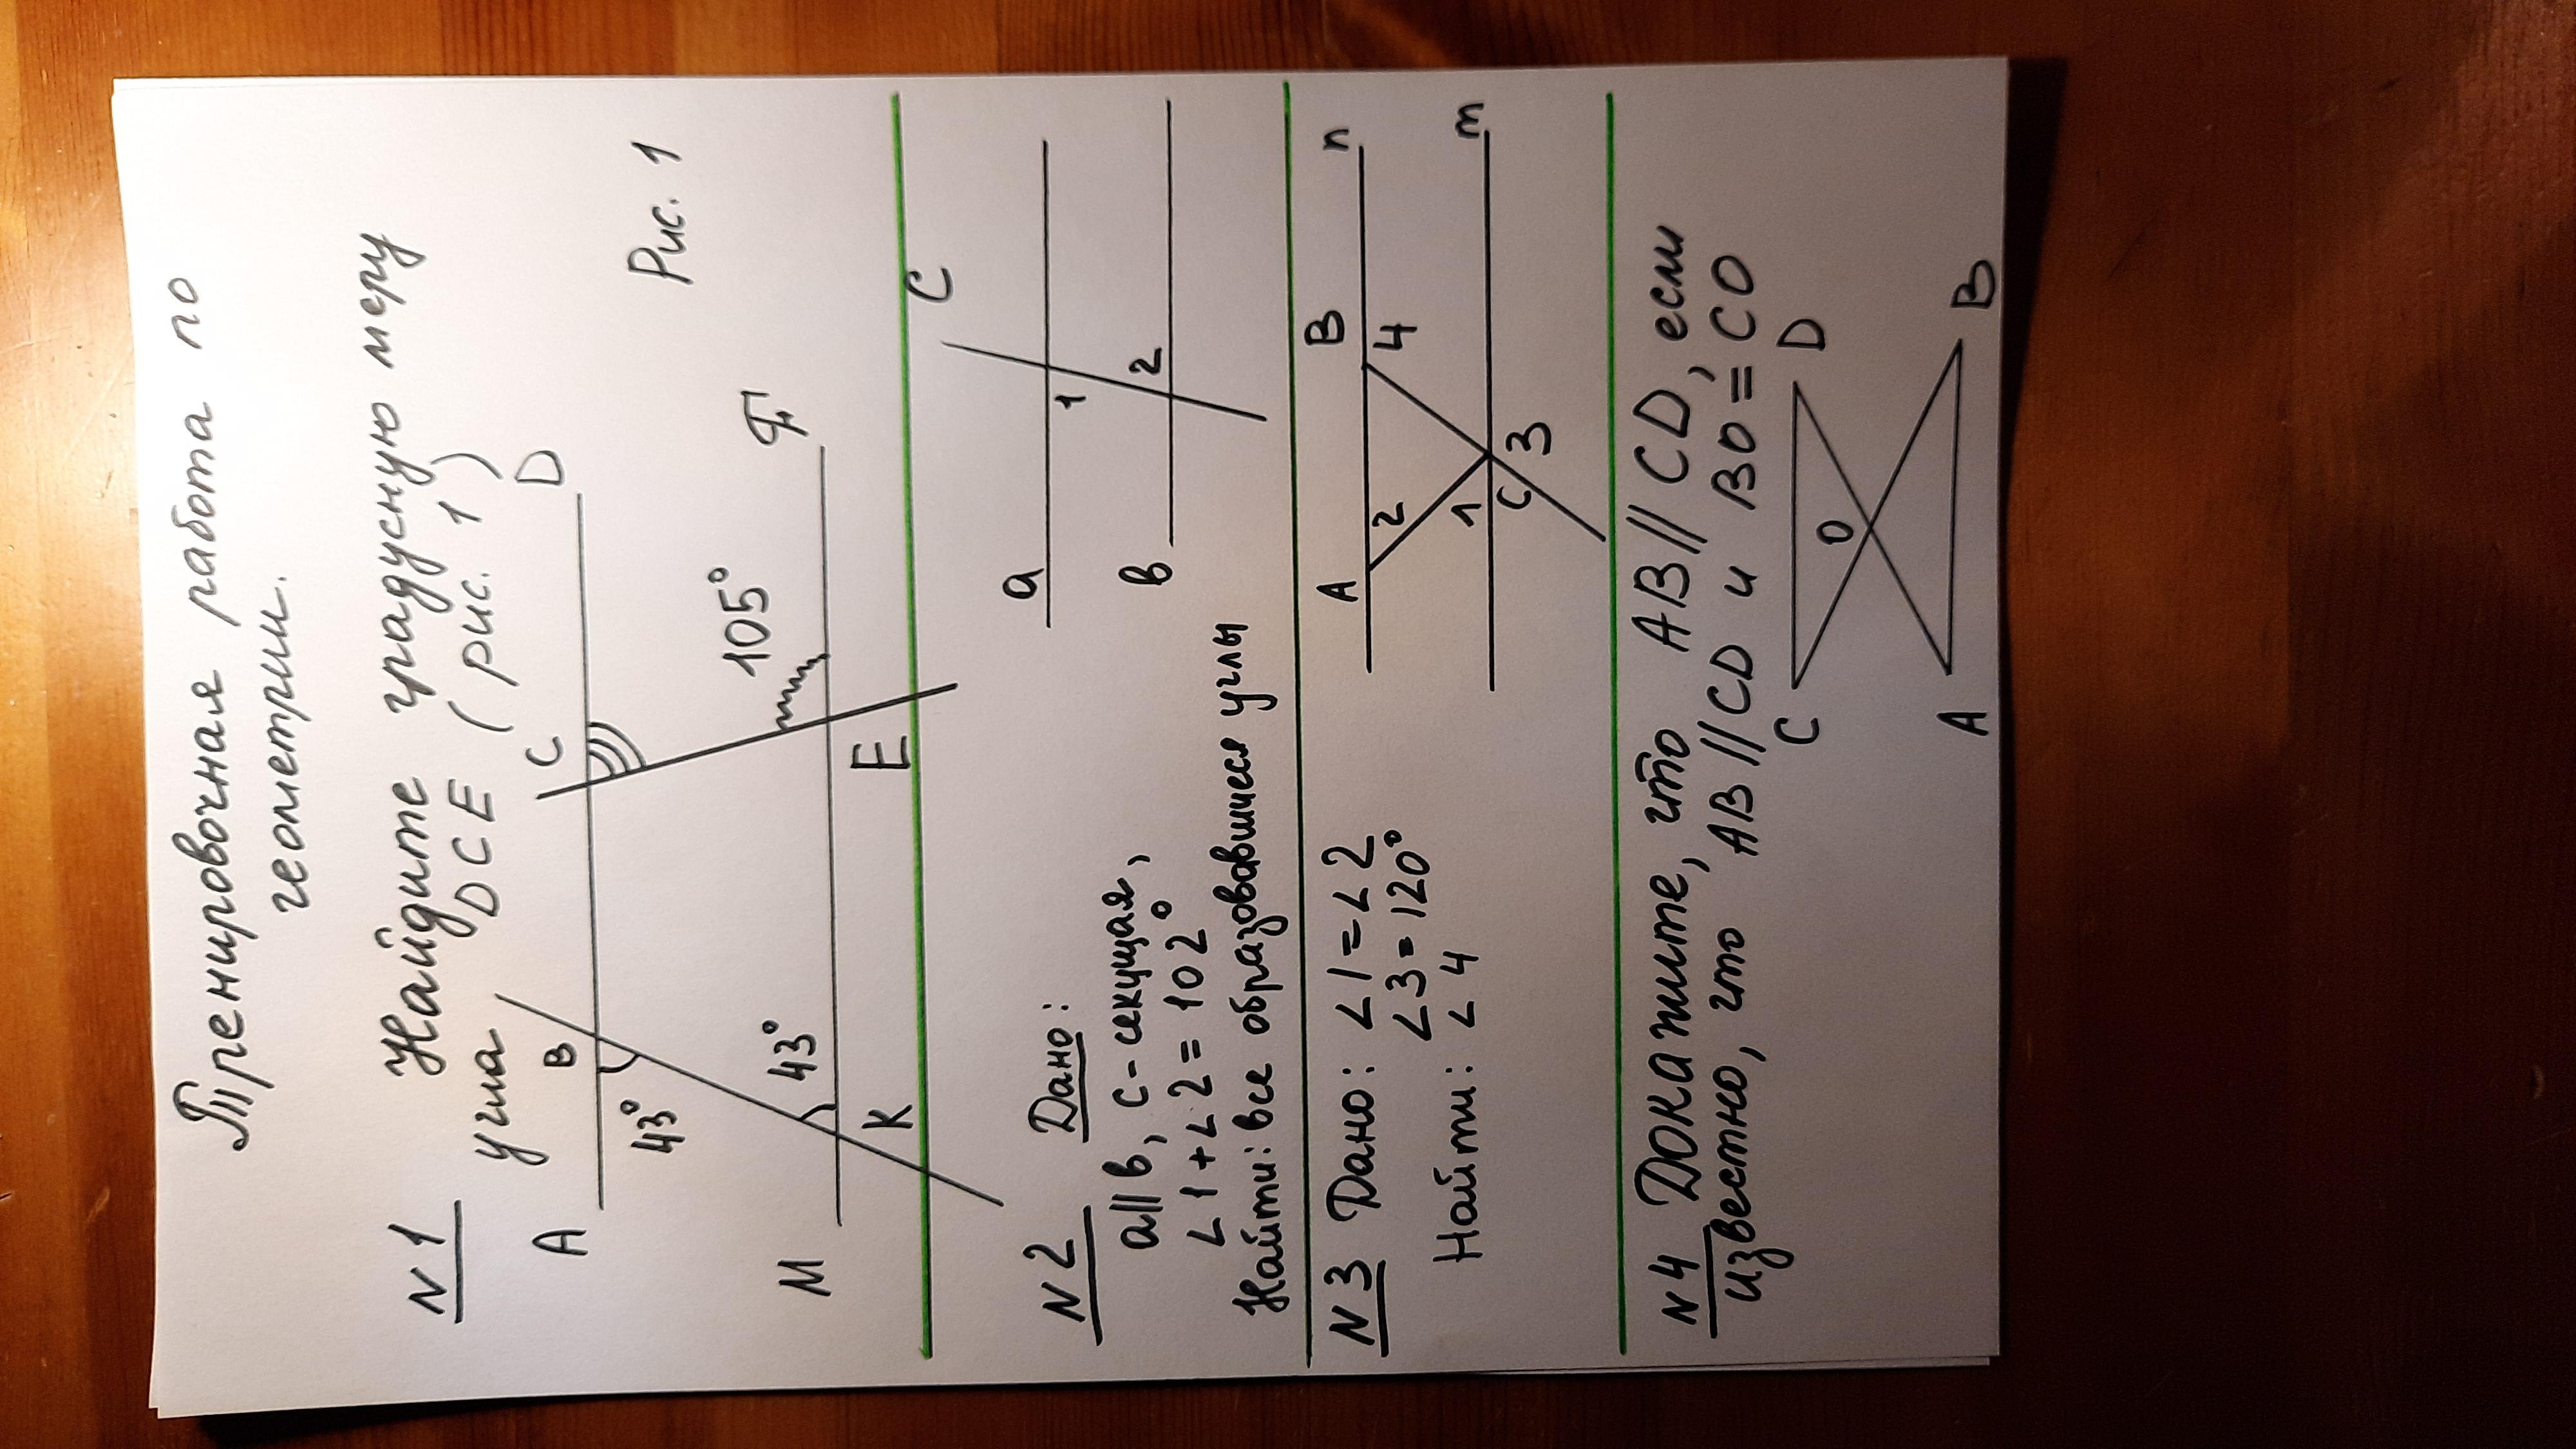 Тренировочная работа по
геометрии.
N 1 Найдите градусную меру
угла DCE (рис. 1)
A B C D
43°
105°
43°
M K E F
Рис. 1
N 2 Дано:
a||в, с-секущая,
∠1+∠2=102°
Найти: все образовавшиеся углы
C
a
1
в
2
N 3 Дано: ∠1=∠2
∠3=120°
Найти: ∠4
A B n
2 4
1 m
C 3
N 4 Докажите, что AB//CD, если
известно, что AB//CD и BO=CO
C D
O
A B